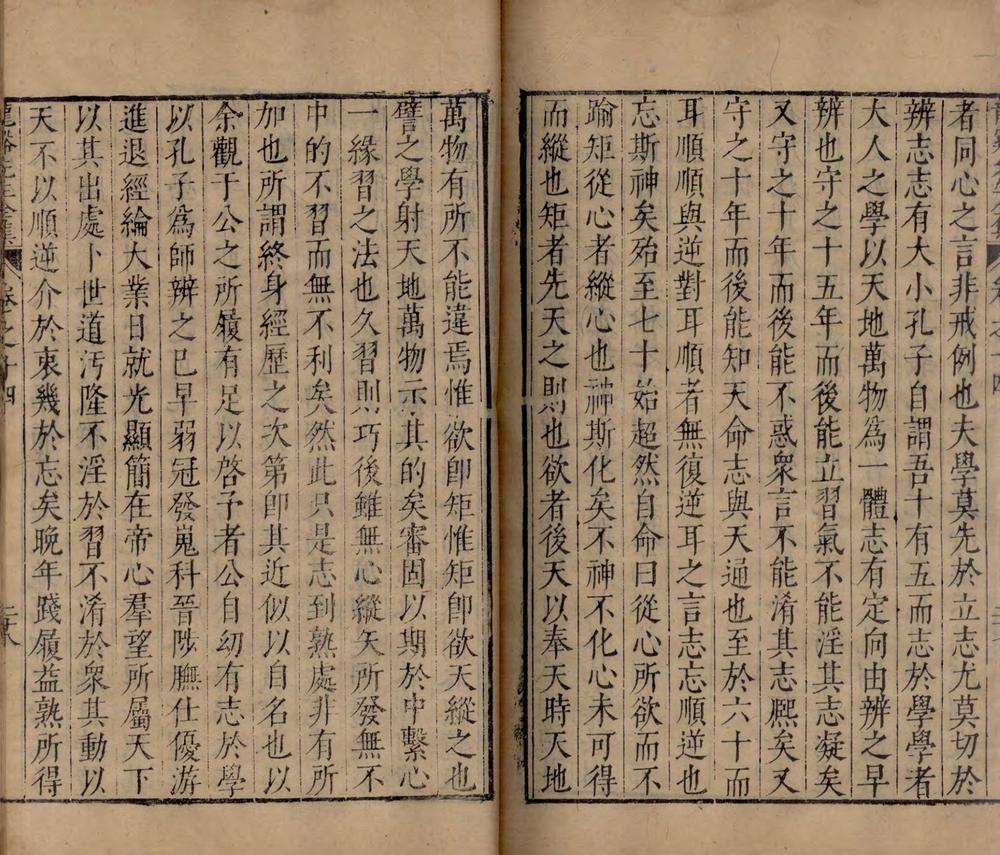 者同心之言非戒例也夫學莫先於立志尤莫切於
辨志志有大小孔子自謂吾十有五而志於學學者
大人之學以天地萬物為一體志有定向由辨之早
辨也守之十五年而後能立習氣不能淫其志凝矣
又守之十年而後能不惑眾言不能淆其志熈矣又
守之十年而後能知天命志與天通也至於六十而
耳順順與逆對耳順者無復逆耳之言志忘順逆也
忘斯神矣殆至七十始超然自命曰從心所欲而不
踰矩從心者縱心也神斯化矣不神不化心未可得
而縱也矩者先天之則也欲者後天以奉天時天地
萬物有所不能違焉惟欲卽矩惟矩卽欲天縱之也
譬之學射天地萬物示其的矣審固以期於中繫心
一緣習之法也久習則巧後雖無心縱矢所發無不
中的不習而無不利矣然此只是志到熟處非有所
加也所謂終身經歷之次第卽其近似以自名也以
余觀于公之所履有足以啓予者公自幼有志於學
以孔子爲師辨之已早弱冠發嵬科晉陟膴仕優游
進退經綸大業日就光顯簡在帝心羣望所屬天下
以其出處卜世道汚隆不淫於習不淆於衆其動以
天不以順逆介於衷幾於忘矣晚年踐履益熟所得
龍谿先生全集 卷之十四